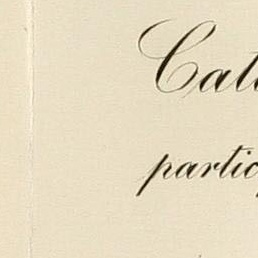 Cat
partic